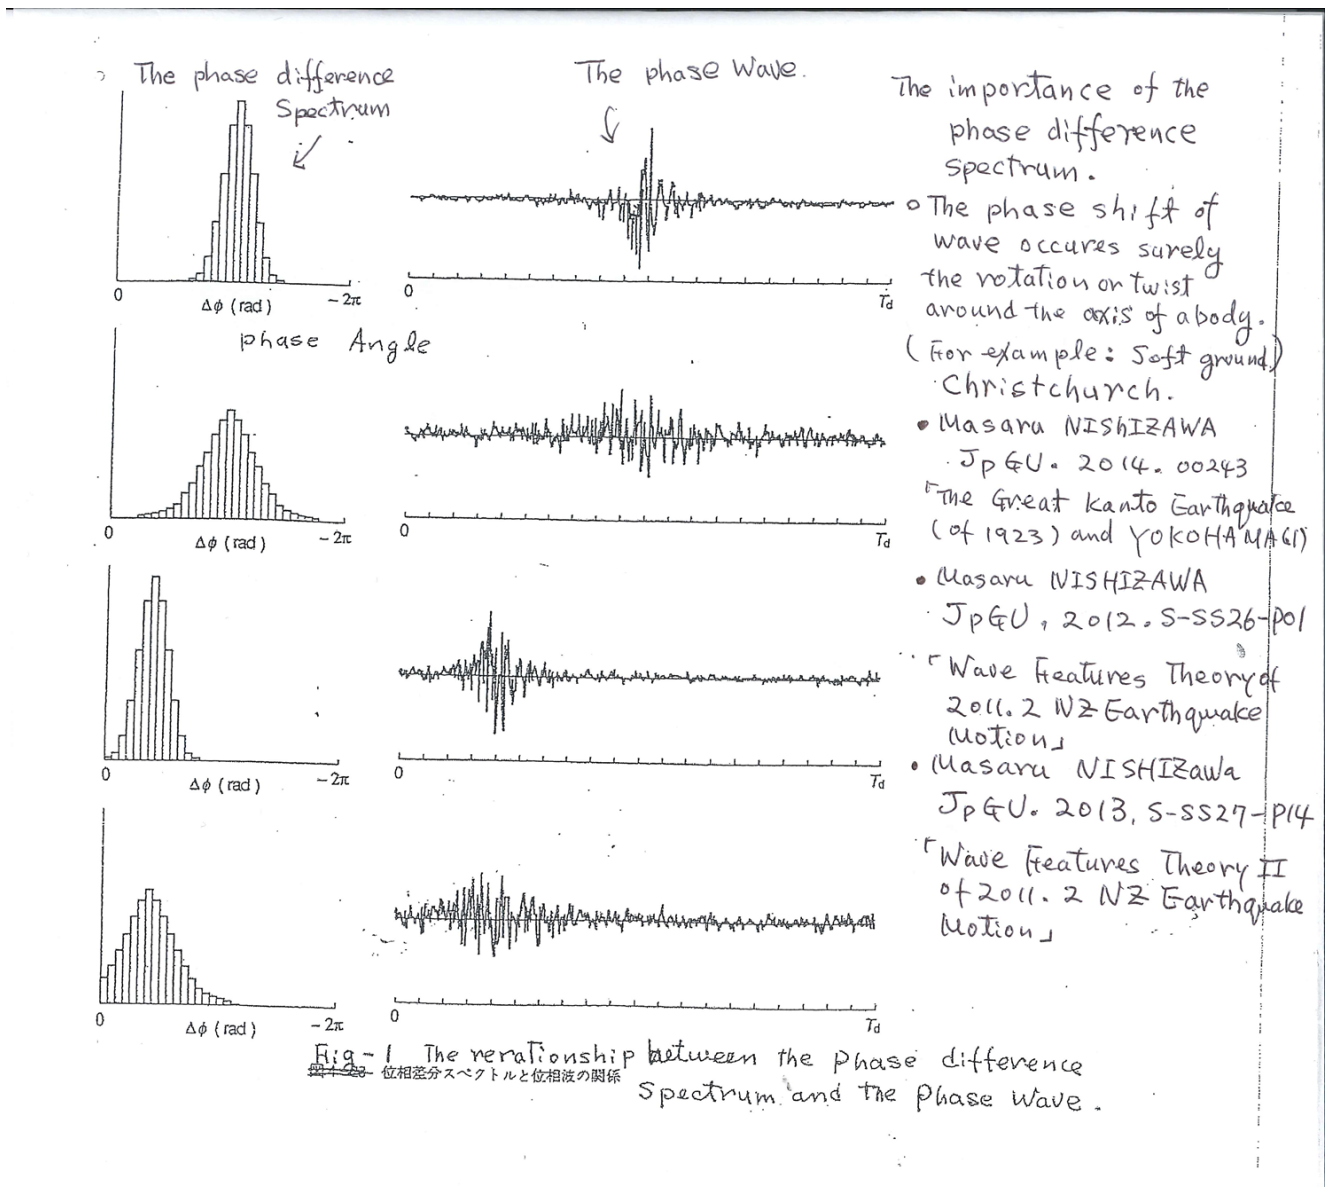 The phase difference
Spectrum
The phase Wave.
0
Δϕ (rad)
-2π
0
Td
phase Angle
0
Δϕ (rad)
-2π
0
Td
0
Δϕ (rad)
-2π
0
Td
0
Δϕ (rad)
-2π
0
Td
The importance of the
phase difference
spectrum.
o The phase shift of
wave occures surely
the rotation or twist
around the axis of a body.
(For example: Soft ground)
Christchurch.
• Masaru NIShIZAWA
JpGU. 2014. 00243
「The Great Kanto Earthquake
(of 1923) and YOKOHAMA(1)
• Masaru NISHIZAWA
JpGU, 2012. S-SS26-P01
「Wave Features Theory of
2011.2 NZ Earthquake
Motion」
• Masaru NISHIZawa
JpGU. 2013, S-SS27-P14
「Wave Features Theory II
of 2011.2 NZ Earthquake
Motion」
Fig-1 The rerationship between the phase difference
位相差分スペクトルと位相波の関係
Spectrum and the Phase Wave.